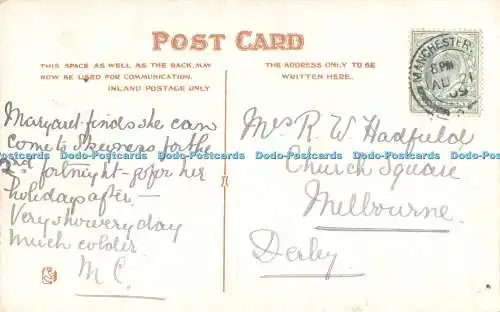 POST CARD
THIS SPACE AS WELL AS THE BACK, MAY
NOW BE USED FOR COMMUNICATION.
INLAND POSTAGE ONLY
THE ADDRESS ONLY TO BE
WRITTEN HERE.
MANCHESTER
8 PM
AU 21
09
Margaret finds she can
come to Skewens for the
2nd fortnight - go for her
holidays after -
Very showery day
Much colder.
M C.
Mrs R. W. Hadfield
Church Square
Melbourne.
Derby
Dodo-Postcards Dodo-Postcards Dodo-Postcards Dodo-Postcards Dodo-Postcards Dodo-Postcards